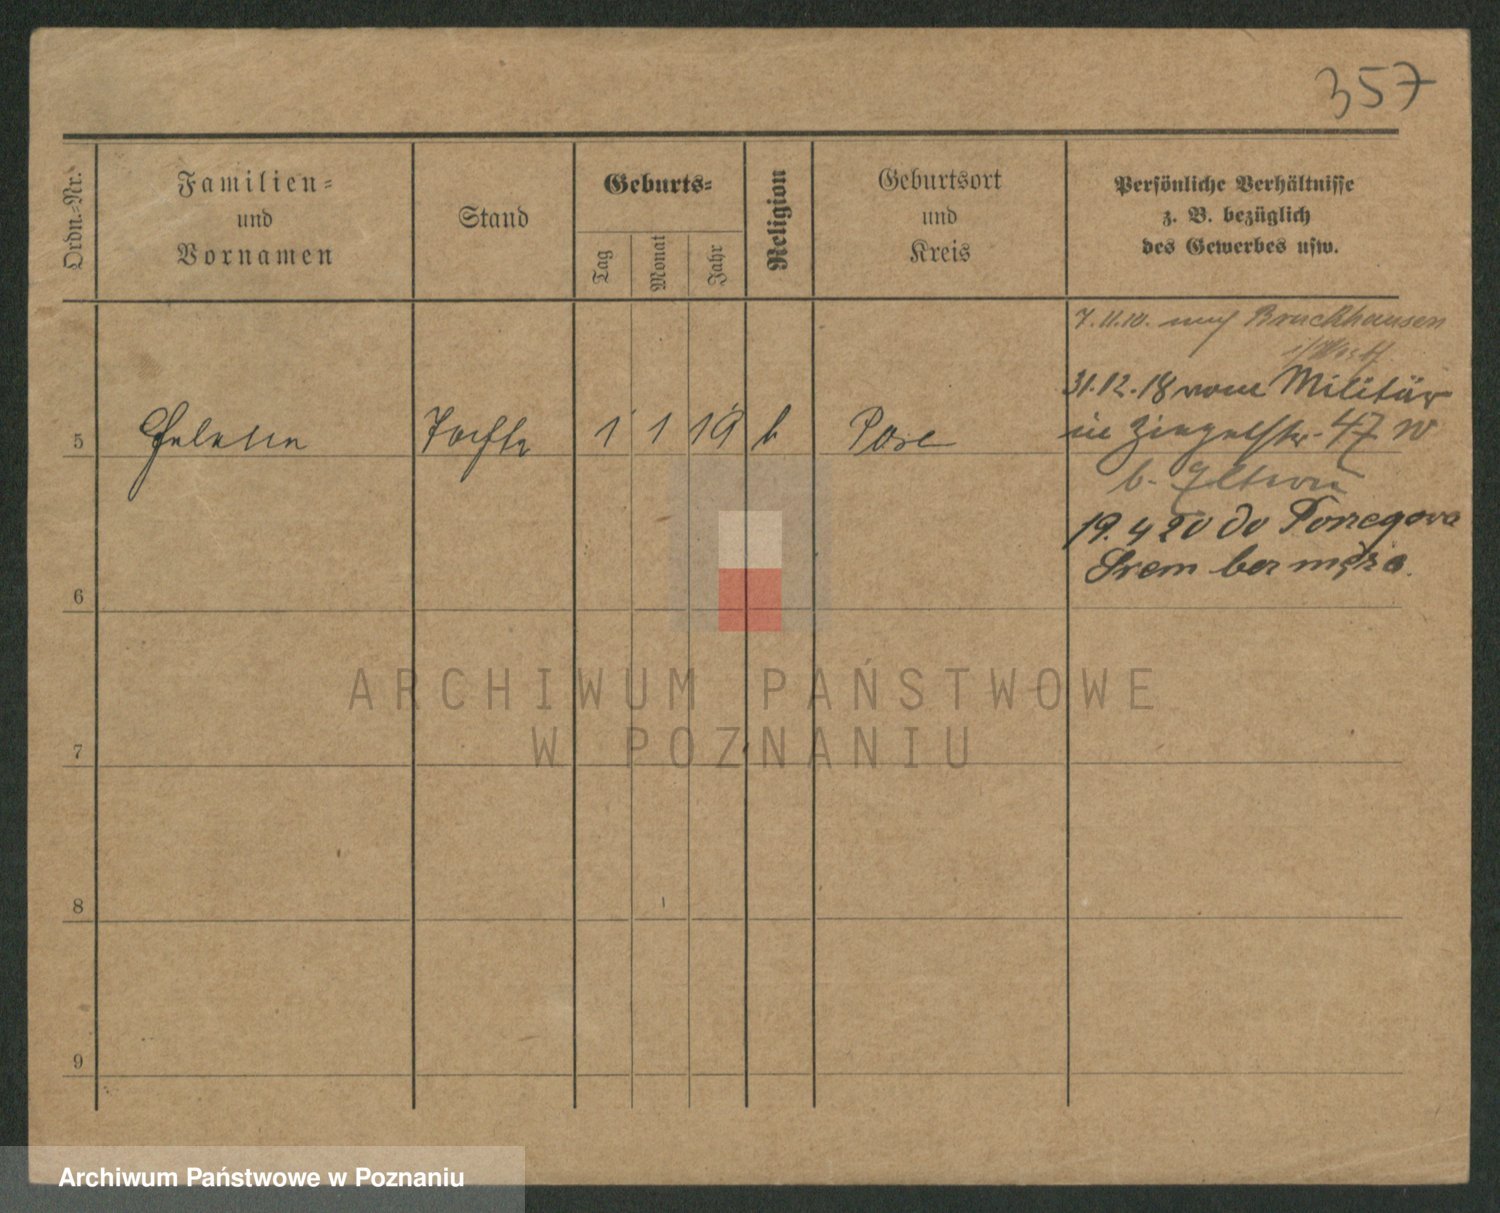 357
Ordn.-Nr.
Familien-
und
Vornamen
Stand
Geburts-
Tag
Monat
Jahr
Religion
Geburtsort
und
Kreis
Persönliche Verhältnisse
z. B. bezüglich
des Gewerbes usw.
7.11.10. nach Bruckhausen
31.12.18 vom Militär
5 Helene Tochter 1 1 19 k Posen in Ziegelstr. 47 W
b. Eltern
19. 4 20 do
Srem bez męża.
6
7
8
9
ARCHIWUM PAŃSTWOWE
W POZNANIU
Archiwum Państwowe w Poznaniu